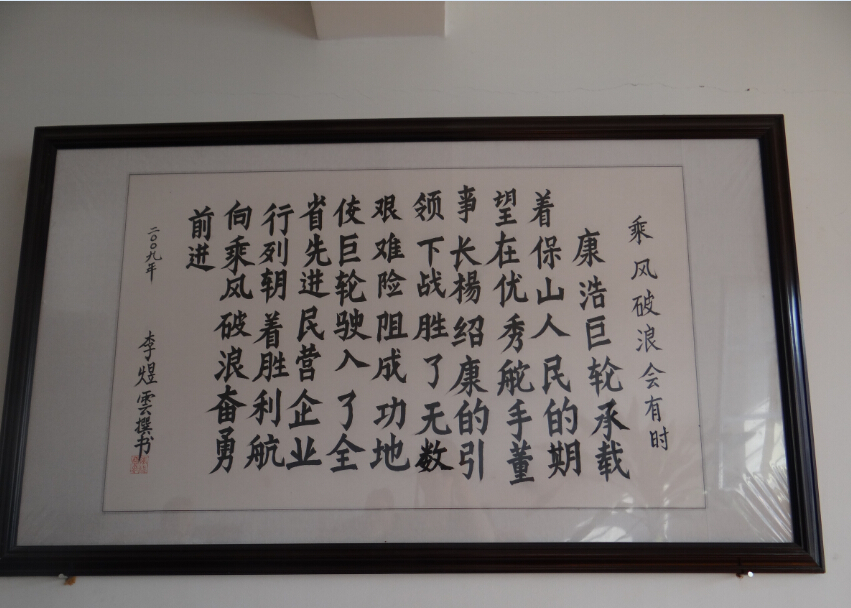 乘风破浪会有时
康浩巨轮承载
着保山人民的期
望在优秀舵手董
事长楊绍康的引
领下战胜了无数
艰难险阻成功地
使巨轮驶入了全
省先进民营企业
行列朝着胜利航
向乘风破浪奋勇
前进
二00九年
李煜雲撰书